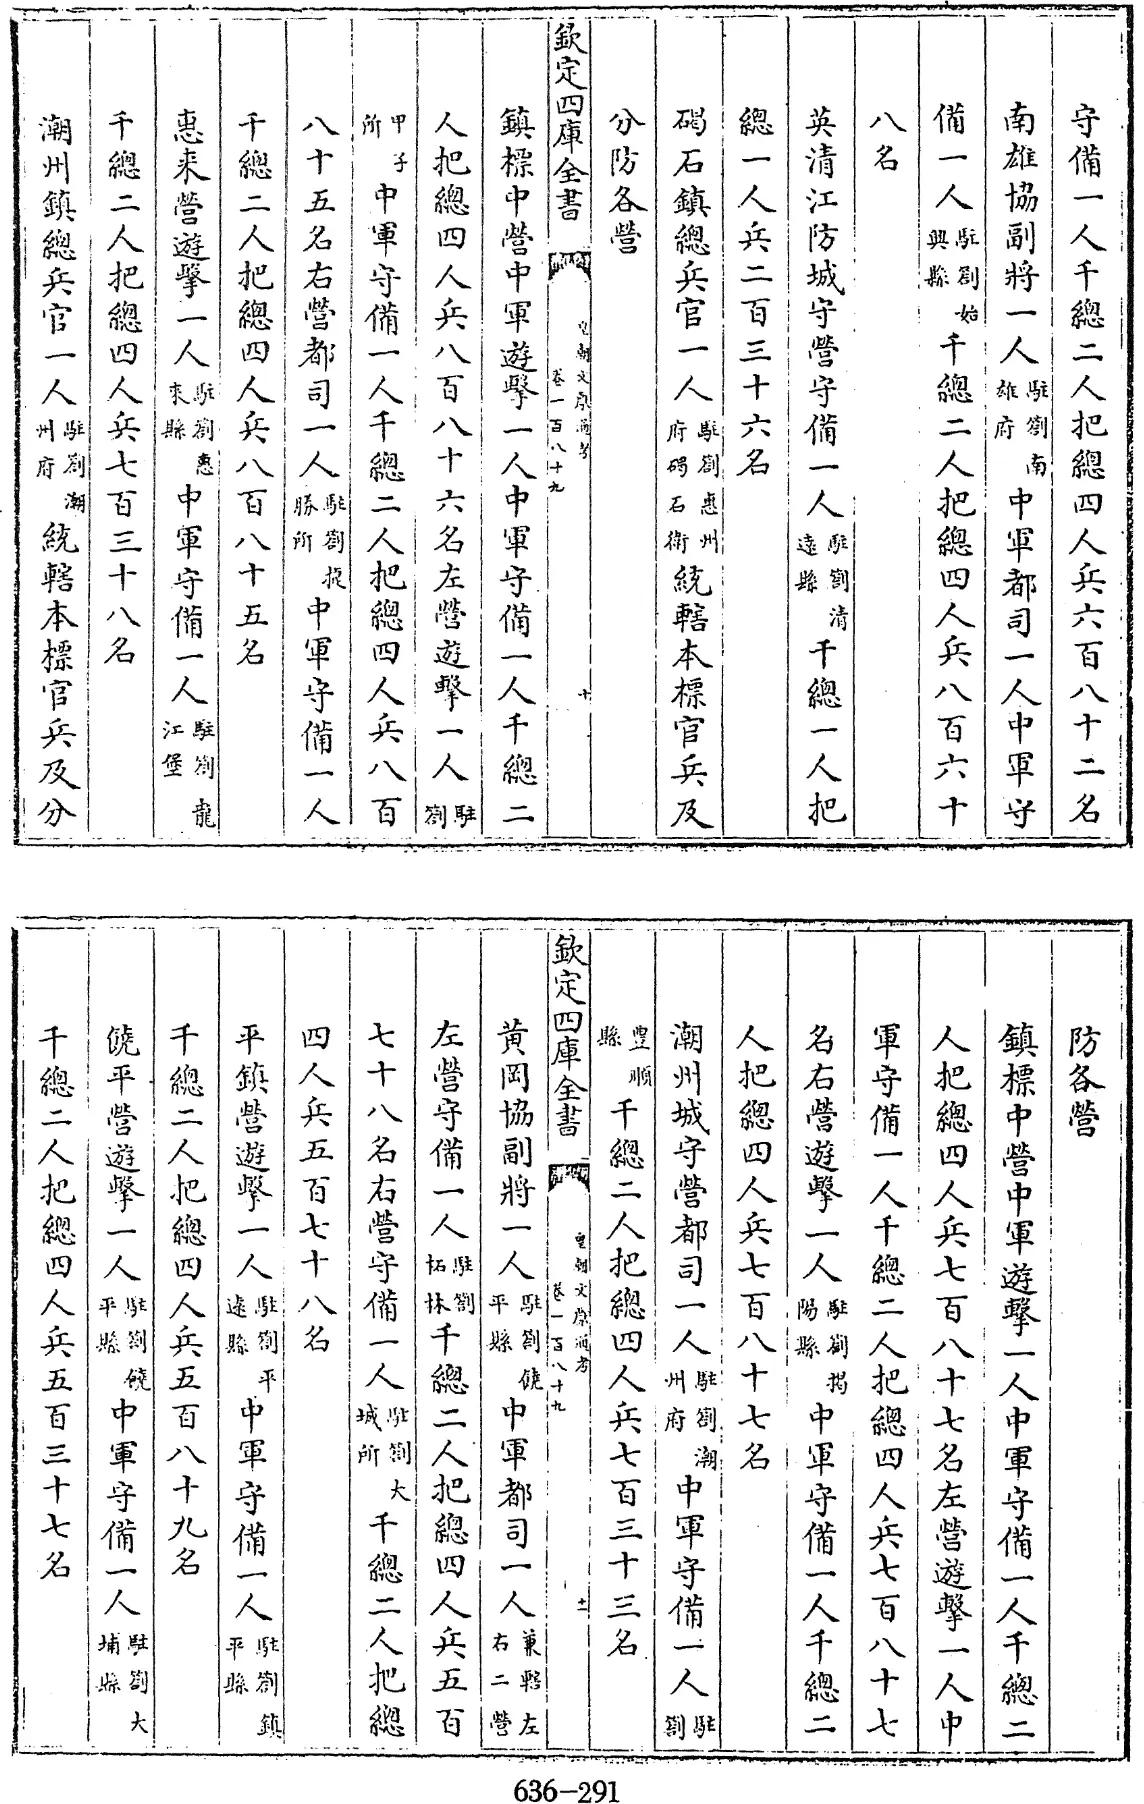 守備一人千總二人把總四人兵六百八十二名
南雄協副將一人駐劄南雄府中軍都司一人中軍守
備一人駐劄始興縣千總二人把總四人兵八百六十
八名
英清江防城守營守備一人駐劄清遠縣千總一人把
總一人兵二百三十六名
碣石鎮總兵官一人駐劄惠州府碣石衛統轄本標官兵及
分防各營
欽定四庫全書
皇朝文獻通考
卷一百八十九
十
鎮標中營中軍遊擊一人中軍守備一人千總二
人把總四人兵八百八十六名左營遊擊一人駐劄
甲子所中軍守備一人千總二人把總四人兵八百
八十五名右營都司一人駐劄捷勝所中軍守備一人
千總二人把總四人兵八百八十五名
惠來營遊擊一人駐劄惠來縣中軍守備一人駐劄龍江堡
千總二人把總四人兵七百三十八名
潮州鎮總兵官一人駐劄潮州府統轄本標官兵及分
防各營
鎮標中營中軍遊擊一人中軍守備一人千總二
人把總四人兵七百八十七名左營遊擊一人中
軍守備一人千總二人把總四人兵七百八十七
名右營遊擊一人駐劄揭陽縣中軍守備一人千總二
人把總四人兵七百八十七名
潮州城守營都司一人駐劄潮州府中軍守備一人駐劄
豐順縣千總二人把總四人兵七百三十三名
欽定四庫全書
皇朝文獻通考
卷一百八十九
十一
黃岡協副將一人駐劄饒平縣中軍都司一人兼轄左右二營
左營守備一人駐劄柘林千總二人把總四人兵五百
七十八名右營守備一人駐劄大城所千總二人把總
四人兵五百七十八名
平鎮營遊擊一人駐劄平遠縣中軍守備一人駐劄鎮平縣
千總二人把總四人兵五百八十九名
饒平營遊擊一人駐劄饒平縣中軍守備一人駐劄大埔縣
千總二人把總四人兵五百三十七名
636-291